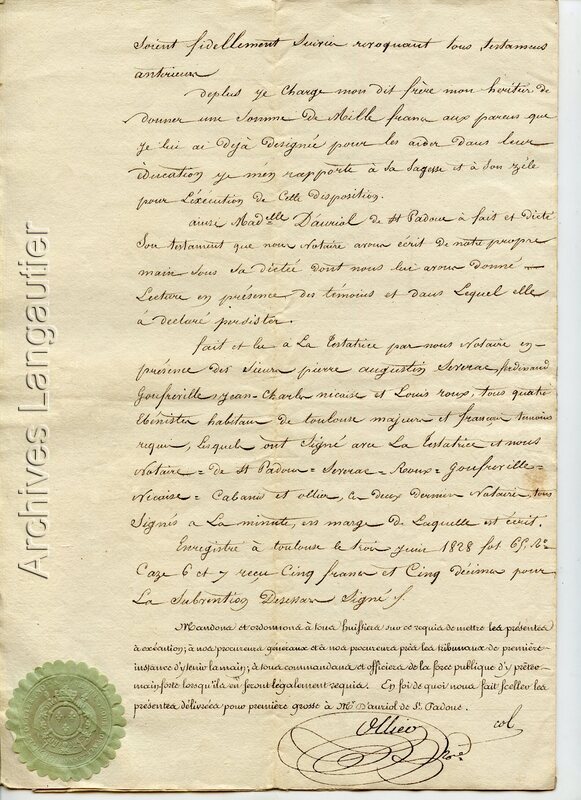 Soient fidellement Suivie revoquant tous testamens
anterieurs
deplus je Charge mon dit frère mon heritier de
donner une Somme de Mille franc aux parens que
je lui ai dejà designée pour les aider dans leur
education je m'en rapporte à sa Sagesse et à Son zèle
pour L'éxécution de Cette disposition.
ainsi Mad.elle Dauriol de St Padoue à fait et dicté
Son testament que nous Notaire avons écrit de notre propre
main sous sa dictée dont nous lui avons donné
Lecture en présence des témoins et dans Lequel elle
à declaré persister.
fait et lu à La testatrice par nous Notaire en
présence des Sieurs pierre augustin Severac, ferdinand
Goufreville, jean-Charles nicaise et Louis roux, tous quatre
Ebénistes habitans de toulouse majeurs et francais témoins
requis, Lesquels ont Signé avec La testatrice et nous
Notaire = de St Padoue = Severac = Roux = Goufreville =
Nicaise = Cabanis et ollier, ces deux derniers Notaires, tous
Signés a La minute, en marge de Laquelle est écrit.
Enregistré à toulouse le trois juin 1828 fol 65 Ro
Caze 6 et 7 reçu Cinq francs et Cinq décimes pour
La Subvention Desessars Signé
Mandons et ordonnons à tous huissiers sur ce requis de mettre les présentes
à exécution; à nos procureurs généraux et à nos procureurs près les tribunaux de première
instance d'y tenir la main; à tous commandans et officiers de la force publique d'y prêter
mainforte lorsqu'ils en seront légalement requis. En foi de quoi nous fait sceller les
présentes délivrées pour première grosse à Mr Dauriol de St Padoue
Ollier
col
Archives Langautier